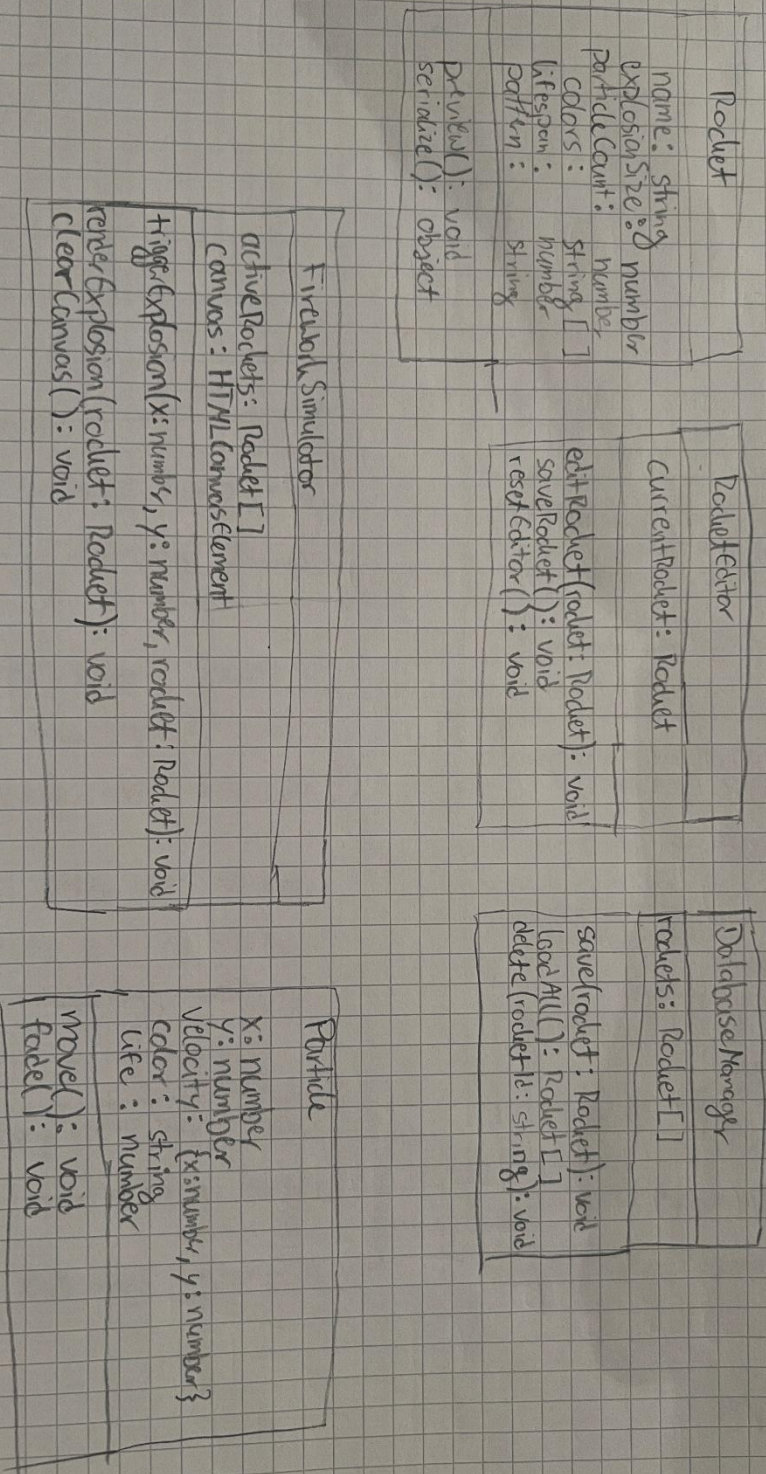 Rocket
name: string
explosionSize: number
particleCount: number
colors: string[]
lifespan: number
pattern: string
preview(): void
serialize(): object
RocketEditor
currentRocket: Rocket
editRocket(rocket: Rocket): void
saveRocket(): void
resetEditor(): void
DatabaseManager
rockets: Rocket[]
save(rocket: Rocket): void
loadAll(): Rocket[]
delete(rocketId: string): void
FireworkSimulator
activeRockets: Rocket[]
canvas: HTMLCanvasElement
triggerExplosion(x: number, y: number, rocket: Rocket): void
renderExplosion(rocket: Rocket): void
clearCanvas(): void
Particle
x: number
y: number
velocity: {x: number, y: number}
color: string
life: number
move(): void
fade(): void